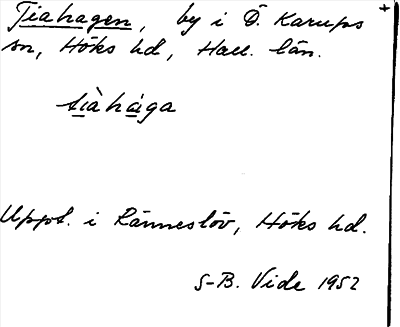 Tiahagen, by i Ö. Karups +
sn, Höks hd, Hall. län.
tiàhága
Uppt. i Ränneslöv, Höks hd.
S-B. Vide 1952